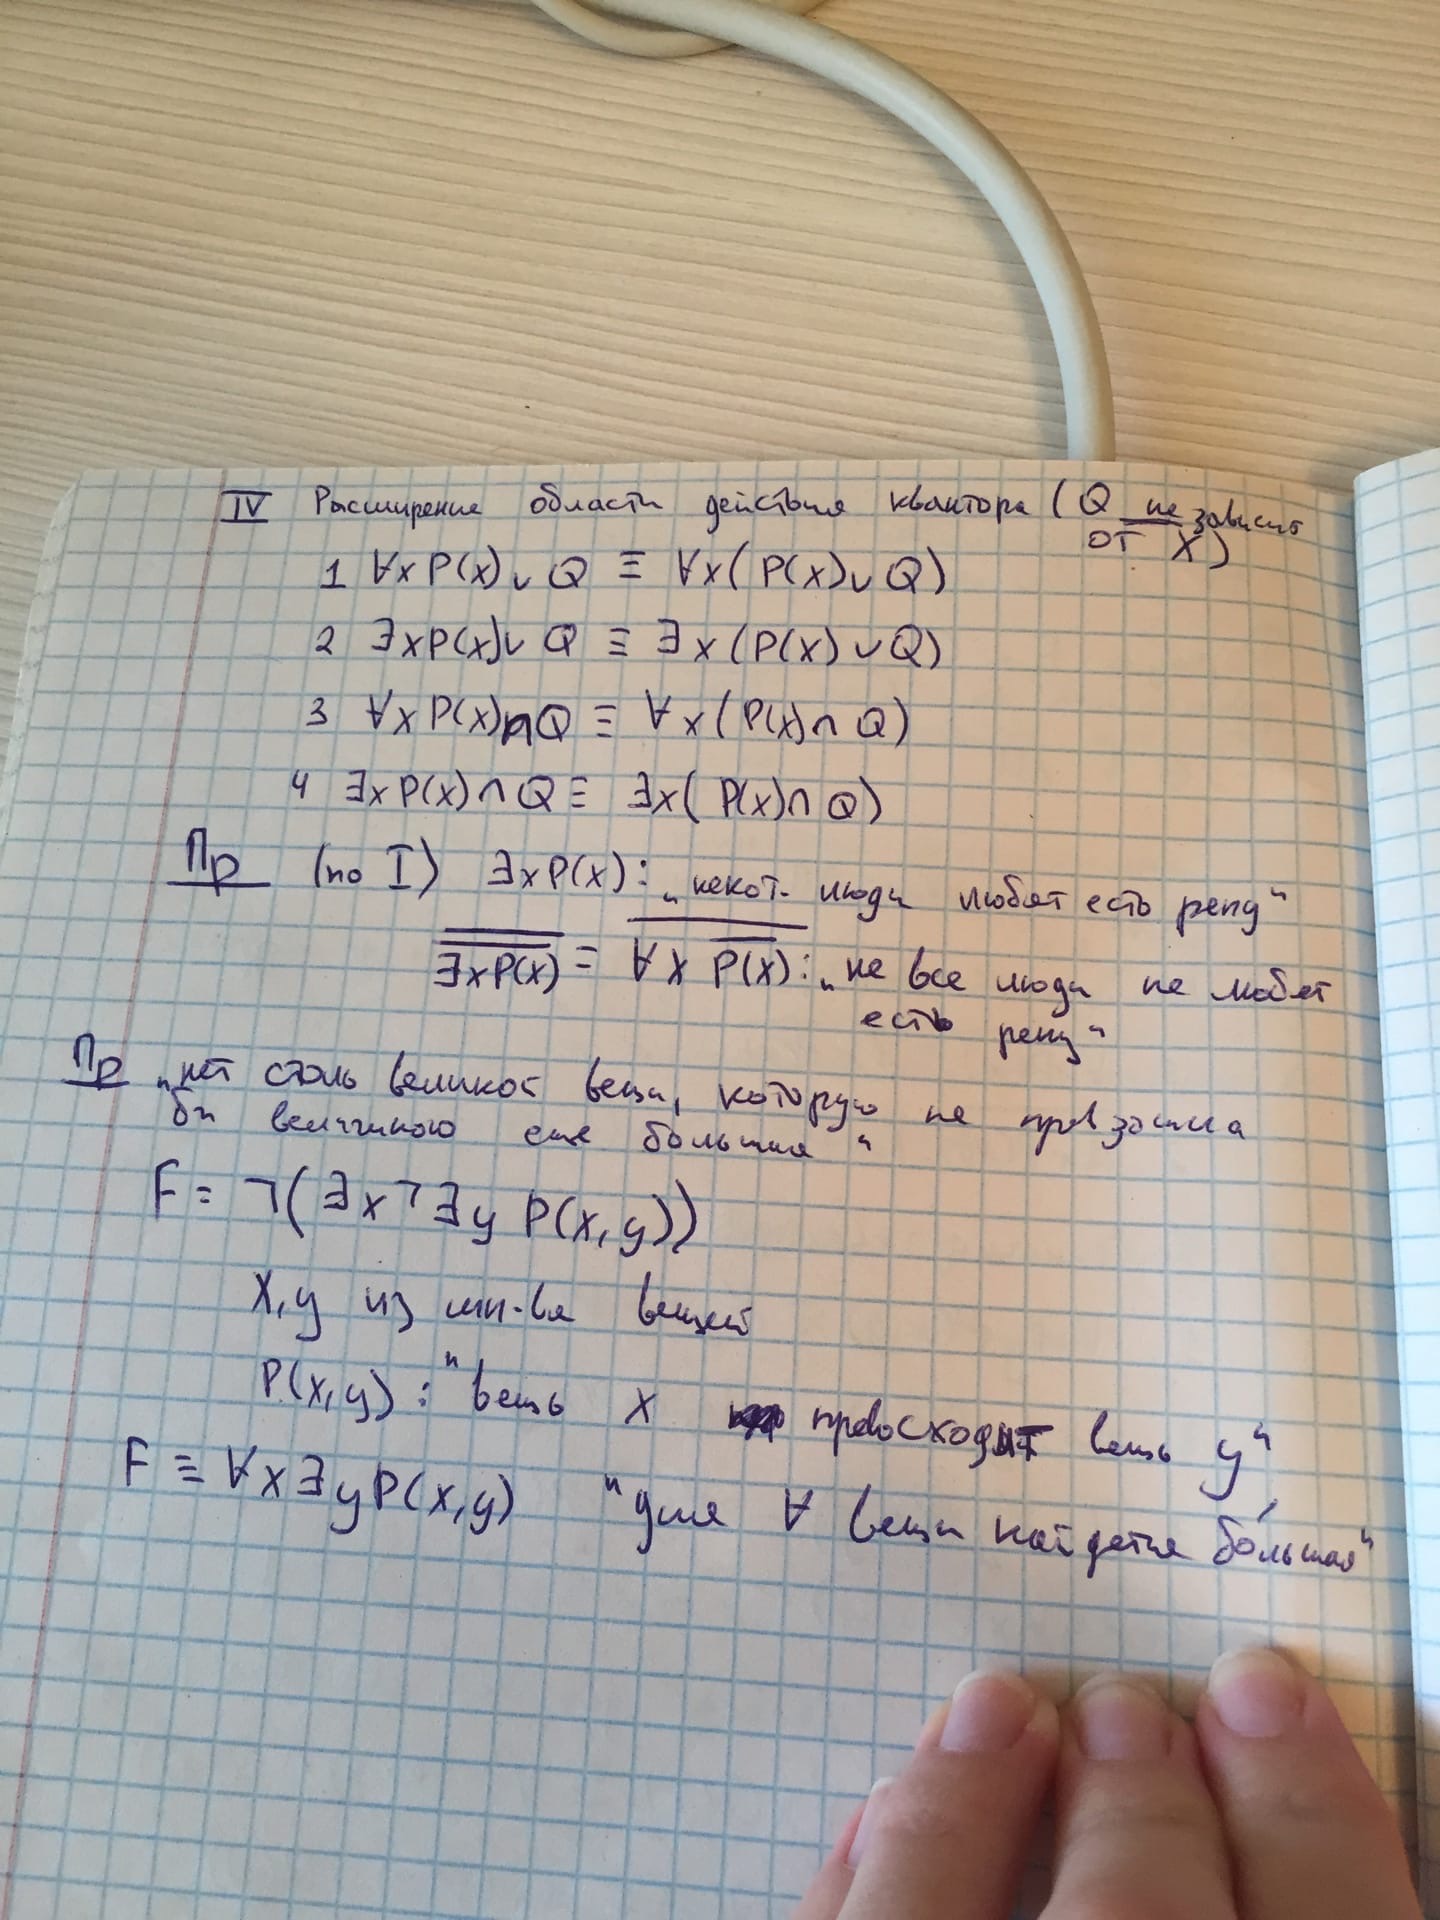 IV Расширение области действия квантора (Q не зависит
от X)
1 ∀x P(x) ∨ Q ≡ ∀x (P(x) ∨ Q)
2 ∃x P(x) ∨ Q ≡ ∃x (P(x) ∨ Q)
3 ∀x P(x) ∩ Q ≡ ∀x (P(x) ∩ Q)
4 ∃x P(x) ∩ Q ≡ ∃x (P(x) ∩ Q)
Пр (по I) ∃x P(x): „некот. люди любят есть репу“
∃x P(x) = ∀x P(x): „не все люди не любят
есть репу“
Пр „нет столь великой вещи, которую не превзошла
бы величиною еще большая“
F = ¬(∃x ¬∃y P(x, y))
X, y из мн-ва вещей
P(x, y): "вещь X превосходит вещь y"
F ≡ ∀x ∃y P(x, y) "для ∀ вещи найдется бо́льшая"